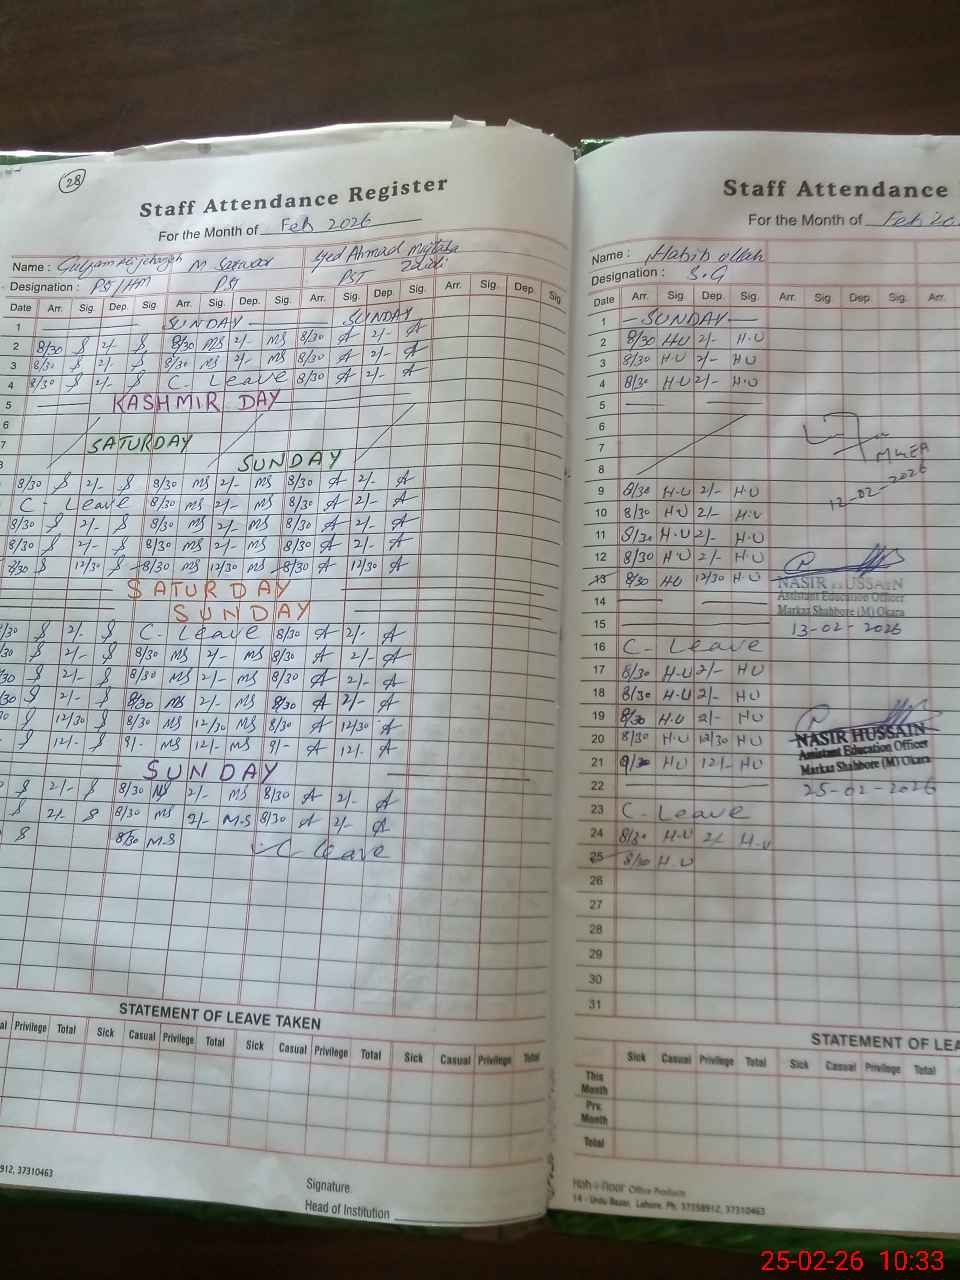 28
Staff Attendance Register
For the Month of Feb 2026
Name : Gulzam M Sarwar Syed Ahmad Mujtaba Zaidi
Designation : PST/HM PST PST
Date Arr. Sig. Dep. Sig. Arr. Sig. Dep. Sig. Arr. Sig. Dep. Sig. Arr. Sig. Dep. Sig.
1 SUNDAY SUNDAY
2 8/30 S 2/- S 8/30 MS 2/- MS 8/30 A 2/- A
3 8/30 S 2/- S 8/30 MS 2/- MS 8/30 A 2/- A
4 8/30 S 2/- S C. Leave 8/30 A 2/- A
5 KASHMIR DAY
6
7 SATURDAY
8 SUNDAY
8/30 S 2/- S 8/30 MS 2/- MS 8/30 A 2/- A
C - Leave 8/30 MS 2/- MS 8/30 A 2/- A
8/30 S 2/- S 8/30 MS 2/- MS 8/30 A 2/- A
8/30 S 2/- S 8/30 MS 2/- MS 8/30 A 2/- A
8/30 S 12/30 S 8/30 MS 12/30 MS 8/30 A 12/30 A
SATURDAY
SUNDAY
/30 S 2/- S C. Leave 8/30 A 2/- A
30 S 2/- S 8/30 MS 2/- MS 8/30 A 2/- A
30 S 2/- S 8/30 MS 2/- MS 8/30 A 2/- A
30 S 2/- S 8/30 MS 2/- MS 8/30 A 2/- A
30 S 12/30 S 8/30 MS 12/30 MS 8/30 A 12/30 A
- S 12/- S 9/- MS 12/- MS 9/- A 12/- A
SUNDAY
S 2/- S 8/30 MS 2/- MS 8/30 A 2/- A
S 2/- S 8/30 MS 2/- M.S 8/30 A 2/- A
S 8/30 M.S C. Leave
STATEMENT OF LEAVE TAKEN
al Privilege Total Sick Casual Privilege Total Sick Casual Privilege Total Sick Casual Privilege Total
912, 37310463
Signature
Head of Institution
Staff Attendance
For the Month of Feb 20
Name : Habib ullah
Designation : S.G
Date Arr. Sig. Dep. Sig. Arr. Sig. Dep. Sig. Arr.
1 SUNDAY
2 8/30 HU 2/- H.U
3 8/30 H.U 2/- HU
4 8/30 H.U 2/- H.U
5
6
7
8
MWEA
12-02-2026
9 8/30 H.U 2/- H.U
10 8/30 HU 2/- H.U
11 8/30 H.U 2/- H.U
12 8/30 H.U 2/- H.U
13 8/30 HU 12/30 H.U
NASIR HUSSAIN
Assistant Education Officer
Markaz Shahbore (M) Okara
13-02-2026
14
15
16 C. Leave
17 8/30 H.U 2/- HU
18 8/30 H.U 2/- HU
19 8/30 H.U 2/- HU
20 8/30 H.U 12/30 HU
21 9/30 HU 12/- HU
NASIR HUSSAIN
Assistant Education Officer
Markaz Shahbore (M) Okara
25-02-2026
22
23 C. Leave
24 8/30 H.U 2/- H.U
25 8/30 H.U
26
27
28
29
30
31
STATEMENT OF LEA
Sick Casual Privilege Total Sick Casual Privilege Total
This Month
Prv. Month
Total
Office Products
14 - Urdu Bazar, Lahore. Ph. 37358912, 37310463
25-02-26 10:33